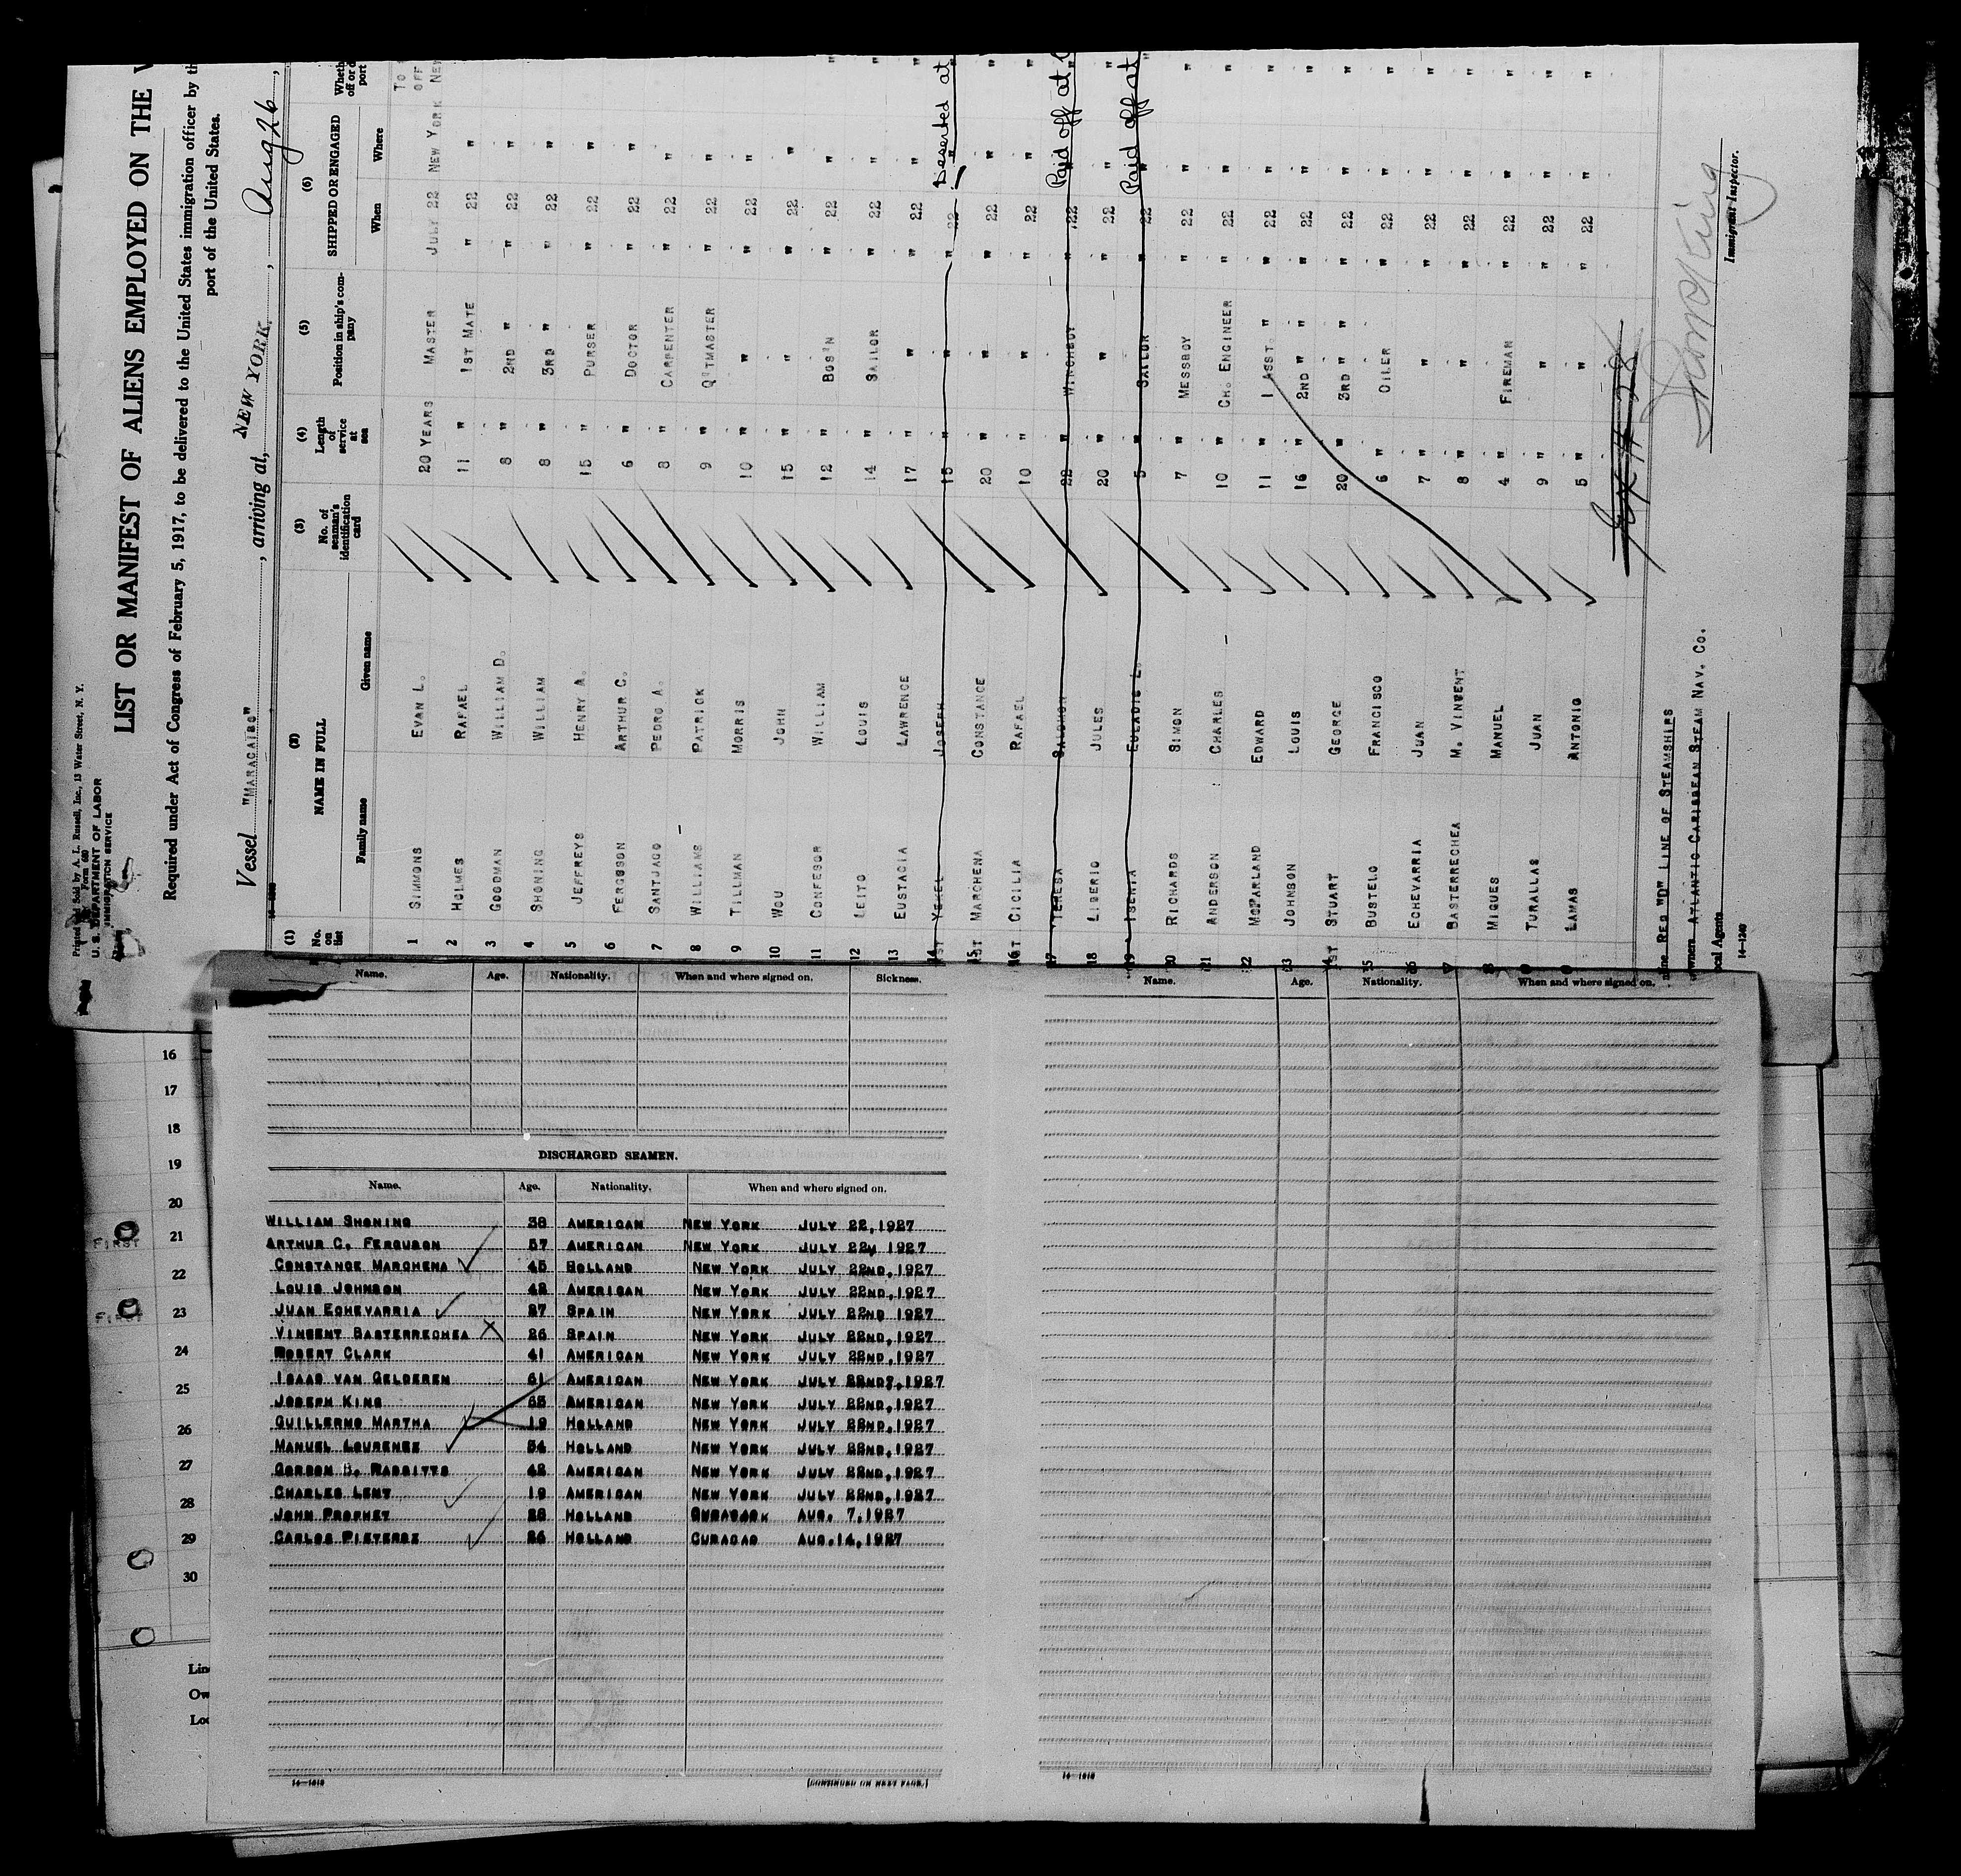 Printed and Sold by A. L. Russell, Inc., 13 Water Street, N. Y.
Form 680
U. S. DEPARTMENT OF LABOR
IMMIGRATION SERVICE
LIST OR MANIFEST OF ALIENS EMPLOYED ON THE
Required under Act of Congress of February 5, 1917, to be delivered to the United States immigration officer by th
port of the United States.
Vessel "MARACAIBO", arriving at, NEW YORK, Aug 26,
(1) (2) (3) (4) (5) (6)
No. on list NAME IN FULL No. of seaman's identification card Length of service at sea Position in ship's company SHIPPED OR ENGAGED Wheth off or d port
Family name Given name When Where
TO
OFF
1 SIMMONS EVAN L. 20 YEARS MASTER JULY 22 NEW YORK NEW
2 HOLMES RAFAEL 11 " 1ST MATE " 22 "
3 GOODMAN WILLIAM D. 8 " 2ND " " 22 "
4 SHONING WILLIAM 8 " 3RD " " 22 "
5 JEFFREYS HENRY A. 15 " PURSER " 22 "
6 FERGSSON ARTHUR C. 6 " DOCTOR " 22 "
7 SANTJAGO PEDRO A. 8 " CARPENTER " 22 "
8 WILLIAMS PATRICK 9 " Q'TMASTER " 22 "
9 TILLMAN MORRIS 10 " " " 22 "
10 WOU JOHN 15 " " " 22 "
11 CONFESOR WILLIAM 12 " BOS'N " 22 " "
12 LEITO LOUIS 14 " SAILOR " 22 " "
13 EUSTACIA LAWRENCE 17 " " " 22 " "
14 JOSEPH 15 " " " 22 " Deserted at
15 MARCHENA CONSTANCE 20 " " " 22 " "
16 CICILIA RAFAEL 10 " " " 22 " "
17 TERESA SALOMON 22 " WINCHBOY " 22 " Paid off at
18 LIBERIO JULES 20 " " " 22 " "
19 ISENIA EULADIO L. 5 " SAILOR " 22 " Paid off at
20 RICHARDS SIMON 7 " MESSBOY " 22 " "
21 ANDERSON CHARLES 10 " CH. ENGINEER " 22 " "
22 MCPARLAND EDWARD 11 " 1 ASST. " " 22 " "
23 JOHNSON LOUIS 16 " 2ND " " " 22 " "
24 STUART GEORGE 20 " 3RD " " " 22 " "
25 BUSTELO FRANCISCO 6 " OILER " 22 " "
26 ECHEVARRIA JUAN 7 " " " 22 " "
BASTERRECHEA M. VINCENT 8 " " " 22 " "
MIGUES MANUEL 4 " FIREMAN " 22 " "
TURALLAS JUAN 9 " " " 22 " "
LAMAS ANTONIO 5 " " " 22 " "
Line RED "D" LINE OF STEAMSHIPS
Owners ATLANTIC CARIBBEAN STEAM NAV. CO.
Local Agents
14—1240
Immigrant Inspector.
Name. Age. Nationality. When and where signed on. Sickness.
DISCHARGED SEAMEN.
Name. Age. Nationality. When and where signed on.
WILLIAM SHONING 38 AMERICAN NEW YORK JULY 22,1927
ARTHUR C. FERGUSON 57 AMERICAN NEW YORK JULY 22, 1927
CONSTANCE MARCHENA 45 HOLLAND NEW YORK JULY 22ND,1927
LOUIS JOHNSON 42 AMERICAN NEW YORK JULY 22ND,1927
JUAN ECHEVARRIA 27 SPAIN NEW YORK JULY 22ND,1927
VINCENT BASTERRECHEA 26 SPAIN NEW YORK JULY 22ND,1927
ROBERT CLARK 41 AMERICAN NEW YORK JULY 22ND,1927
ISAAC VAN GELDEREN 61 AMERICAN NEW YORK JULY 22ND,1927
JOSEPH KING AMERICAN NEW YORK JULY 22ND,1927
GUILLERMO MARTHA 19 HOLLAND NEW YORK JULY 22ND,1927
MANUEL LOURENSZ 54 HOLLAND NEW YORK JULY 22ND,1927
GORDON B. 42 AMERICAN NEW YORK JULY 22ND,1927
CHARLES LENT 19 AMERICAN NEW YORK JULY 22ND,1927
JOHN PROPHET 28 HOLLAND CURACAO AUG. 7,1927
CARLOS PIETERSZ HOLLAND CURACAO AUG.14,1927
14—1818
[CONTINUED ON NEXT PAGE.]
Name. Age. Nationality. When and where signed on.
14—1818
16
17
18
19
20
FIRST 21
22
FIRST 23
24
25
26
27
28
29
30
Lin
Ow
Loc